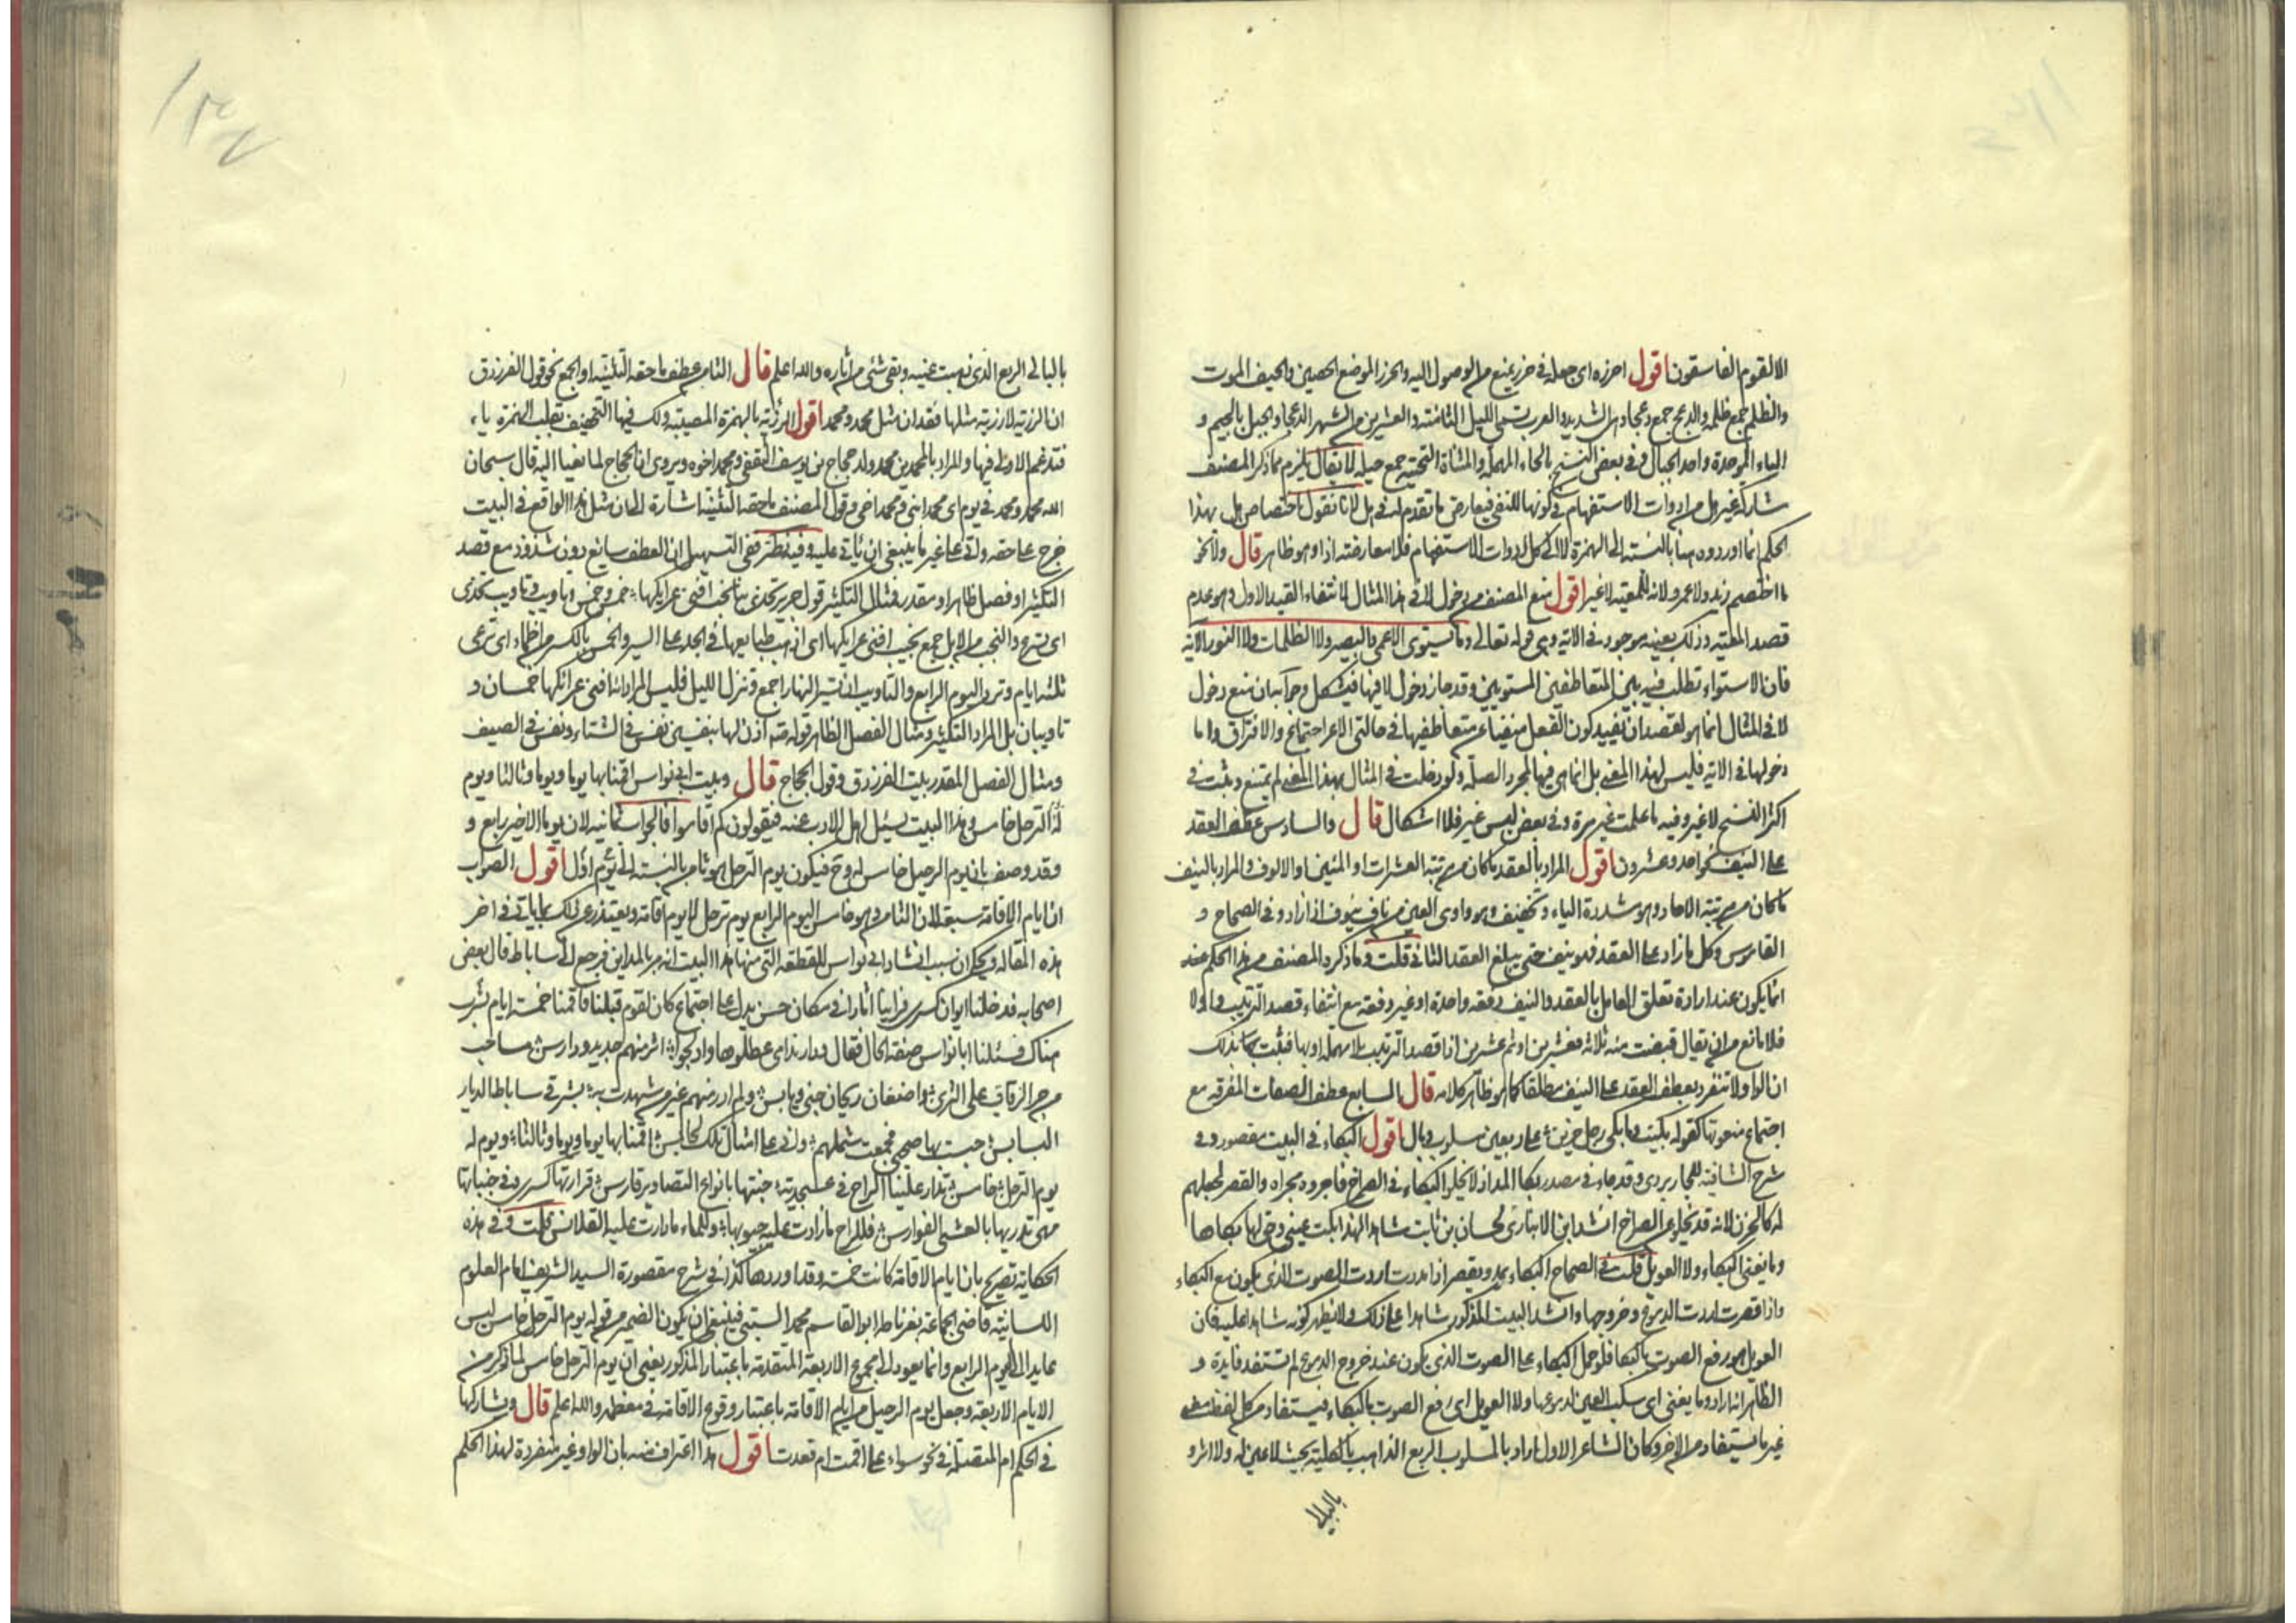 الا القوم الفاسقون اقول احرزه اى جعله فى حرز يمنع من الوصول اليه والحرز الموضع الحصين والحيف الموت
والظلم جمع ظلمه والدعج جمع دعجاء وهى الشديدة والعرب تسمى الليل الثامنة والعشرين من الشهر الدعجاء والجبل بالجيم و
الباء الموحدة واحد الجبال وفى بعض النسخ بالحاء المهملة والمثناة التحتية جمع حيلة لا يقال يلزم مما ذكر المصنف
شاركه غير هل من ادوات الاستفهام فى كونها للنفى فيعارض ما تقدم له فى هل لانا نقول اختصاص هل بهذا
الحكم انما اورده هنا بالنسبة الى الهمزة لا الى كل ادوات الاستفهام فلا معارضة اذا وهو ظاهر قال ولا نحو
ما اختصم زيد ولا عمرو لانه للمعية لا غير اقول منع المصنف من دخول لا فى هذا المثال لانتفاء القيد الاول وهو عدم
قصد المعية وذلك بعينه موجود فى الاية وهى قوله تعالى وما يستوى الاعمى والبصير ولا الظلمات ولا النور الاية
فان الاستواء تطلب فيه بين المتعاطفين المستويين وقد جاز دخول لا فيها فيشكل وجوابه ان منع دخول
لا فى المثال انما هو لقصد ان تفيد كون الفعل منفيا عن متعاطفيها فى حالتى الاجتماع والافتراق واما
دخولها فى الاية فليس لهذا المعنى بل انما هى فيها لمجرد الصلة ولو دخلت فى المثال بهذا المعنى لم يمتنع وثبت فى
اكثر النسخ لا غير وفيه ما علمت غير مرة وفى بعض ليس غير فلا اشكال قال والسادس عطف العقد
على النيف نحو احد وعشرون اقول المراد بالعقد ما كان من مرتبة العشرات او المئين او الالوف والمراد بالنيف
ما كان من مرتبة الاحاد وهو مشددة الياء وتخفف وهو واوى العين من ناف ينوف اذا زاد وفى الصحاح و
القاموس وكل ما زاد على العقد فهو نيف حتى يبلغ العقد الثانى قلت وما ذكره المصنف من هذا الحكم عند
انما يكون عند ارادة تعلق العامل بالعقد والنيف دفعة واحدة او غير دفعة مع انتفاء قصد الترتيب والا
فلا مانع من ان يقال قبضت منه ثلاثة فعشرين او ثم عشرين اذا قصد الترتيب بلا مهملة او بها فثبت بذلك
ان الواو لا تنفرد بعطف العقد على النيف مطلقا كما هو ظاهر كلامه قال السابع عطف الصفات المفرقة مع
اجتماع منعوتها كقوله بكيت وما بكى رجل حزين على ربعين مسلوب وبال اقول البكاء فى البيت مقصور وفى
شرح الشافية للجاربردى وقد جاء فى مصدر بكا المد اذ لا يخلو البكاء فى الصراخ فاجروه مجراه والقصر لجعلهم
له كالحزن لانه قد يخلو عن الصراخ انشد ابن الانبارى لحسان بن ثابت شاهدا لهذا بكت عينى وحق لها بكاها
وما يغنى البكاء ولا العويل قلت فى الصحاح البكاء يمد ويقصر اذا مددت اردت الصوت الذى يكون مع البكاء
واذا قصرت اردت الدموع وخروجها وانشد البيت المذكور شاهدا على ذلك ولا يظهر كونه شاهدا عليه فان
العويل هو رفع الصوت بالبكاء فلو حمل البكاء على الصوت الذى يكون عند خروج الدموع لم تستفد فايدة و
الظاهر انه اراد وما يغنى اى سكب العين لدموعها ولا العويل اى رفع الصوت بالبكاء فيستفاد من كل لفظ معنى
غير ما يستفاد من الاخر وكان الشاعر الاول اراد بالمسلوب الربع الذاهب بالكلية بحيث لا عين له ولا اثر و
بالبالى
بالبالى الربع الذى ذهبت عينه وبقى شئ من اثاره والله اعلم قال الثامن عطف ما حقه التثنية او الجمع نحو قول الفرزدق
ان الرزية لا رزية مثلها فقدان مثل محمد ومحمد اقول الرزئة بالهمزة المصيبة ولك فيها التخفيف تقلب الهمزة ياء
فتدغم الاولى فيها والمراد بالمحمدين محمد ولد حجاج بن يوسف الثقفى ومحمد اخوه ويروى ان الحجاج لما نعيا اليه قال سبحان
الله محمد ومحمد فى يوم اى محمد ابنى ومحمد اخى وقول المصنف ما حقه التثنية اشارة الى ان مثل هذا الواقع فى البيت
خرج عما حقه واتى على غير ما ينبغى ان يأتى عليه وفيه نظر ففى التسهيل ان العطف سايغ دون شذوذ مع قصد
التكثير او فصل ظاهر او مقدر فمثال التكثير قول جرير تخدى بنا نجب افنى عرايكها خمس وخمس وتاويب وتاويب تخدى
اى تسرع والنجب من الابل جمع نجيب افنى عرايكها اى اذهب طبايعها فى الجد على السير والخمس بالكسر من اظماء اى ترعى
ثلثة ايام وترد اليوم الرابع والتاويب ان تسير النهار اجمع وتنزل الليل فليس المراد انه افنى عرائكها خمسان و
تاويبان بل المراد التكثير ومثال الفصل الظاهر قوله عليه اذن لها بنفسين نفس فى الشتاء ونفس فى الصيف
ومثال الفصل المقدر بيت الفرزدق وقول الحجاج قال وبيت ابى نواس اقمنا بها يوما ويوما وثالثا ويوم
له الترحل خامس وهذا البيت يسئل اهل الادب عنه فيقولون كم اقاموا فالجواب ثمانية لان يوما الاخير رابع و
وقد وصف بان يوم الرحيل خامس له وح فيكون يوم الترحل هو ثامن بالنسبة الى يوم اول اقول الصواب
ان ايام الاقامة سبعة لان الثامن وهو خامس اليوم الرابع يوم ترحل لا يوم اقامة ويعتذر عن ذلك بما ياتى فى اخر
هذه المقالة ويحكى ان سبب انشاد ابى نواس للقطعة التى منها هذا البيت انه مر بالمداين فرجع الى ساباط قال بعض
اصحابه فدخلنا ايوان كسرى فراينا اثارا فى مكان حسن يدل على اجتماع كان لقوم قبلنا فاقمنا خمسة ايام نشرب
هناك فسئلنا ابا نواس صفة الحال فقال ودار ندامى عطلوها وادلجوا اثر منهم جديد ودارس مساحب
من جر الزقاق على الثرى واضغاث ريحان جنى ويابس ولم ادر منهم غير من شهدت به بشرقى ساباط الديار
البسابس حبست بها صحبى فجمعت شملهم وانى على امثال تلك لحابس اقمنا بها يوما ويوما وثالثا ويوم له
يوم الترحل خامس تدار علينا الراح فى عسجدية حبتها بانواع التصاوير فارس قرارتها كسرى وفى جنباتها
مهى تدريها بالعشى الفوارس فللراح ما زرت عليه جيوبها وللماء ما دارت عليه القلانس قلت وفى هذه
الحكاية تصريح بان ايام الاقامة كانت خمسة وقد اوردها كذا فى شرح مقصورة السيد الشريف امام العلوم
اللسانية قاضى الجماعة بغرناطة ابو القاسم محمد السبتى فينبغى ان يكون الضمير من قوله يوم الترحل خامس ليس
عايدا الى اليوم الرابع وانما يعود الى مجموع الاربعة المتقدمة باعتبار المذكور يعنى ان يوم الترحل خامس لما ذكر من
الايام الاربعة وجعل يوم الرحيل من ايام الاقامة باعتبار وقوع الاقامة فى معظمه والله اعلم قال ويشاركها
فى الحكم ام المتصلة فى نحو سواء على اقمت ام قعدت اقول هذا اعتراف منه بان الواو غير منفردة لهذا الحكم